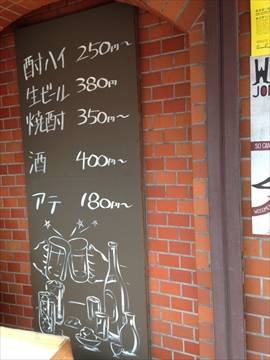 酎ハイ 250円~
生ビール 380円
焼酎 350円~
酒 400円~
アテ 180円~
W
JO
SO CAN
WELCOME